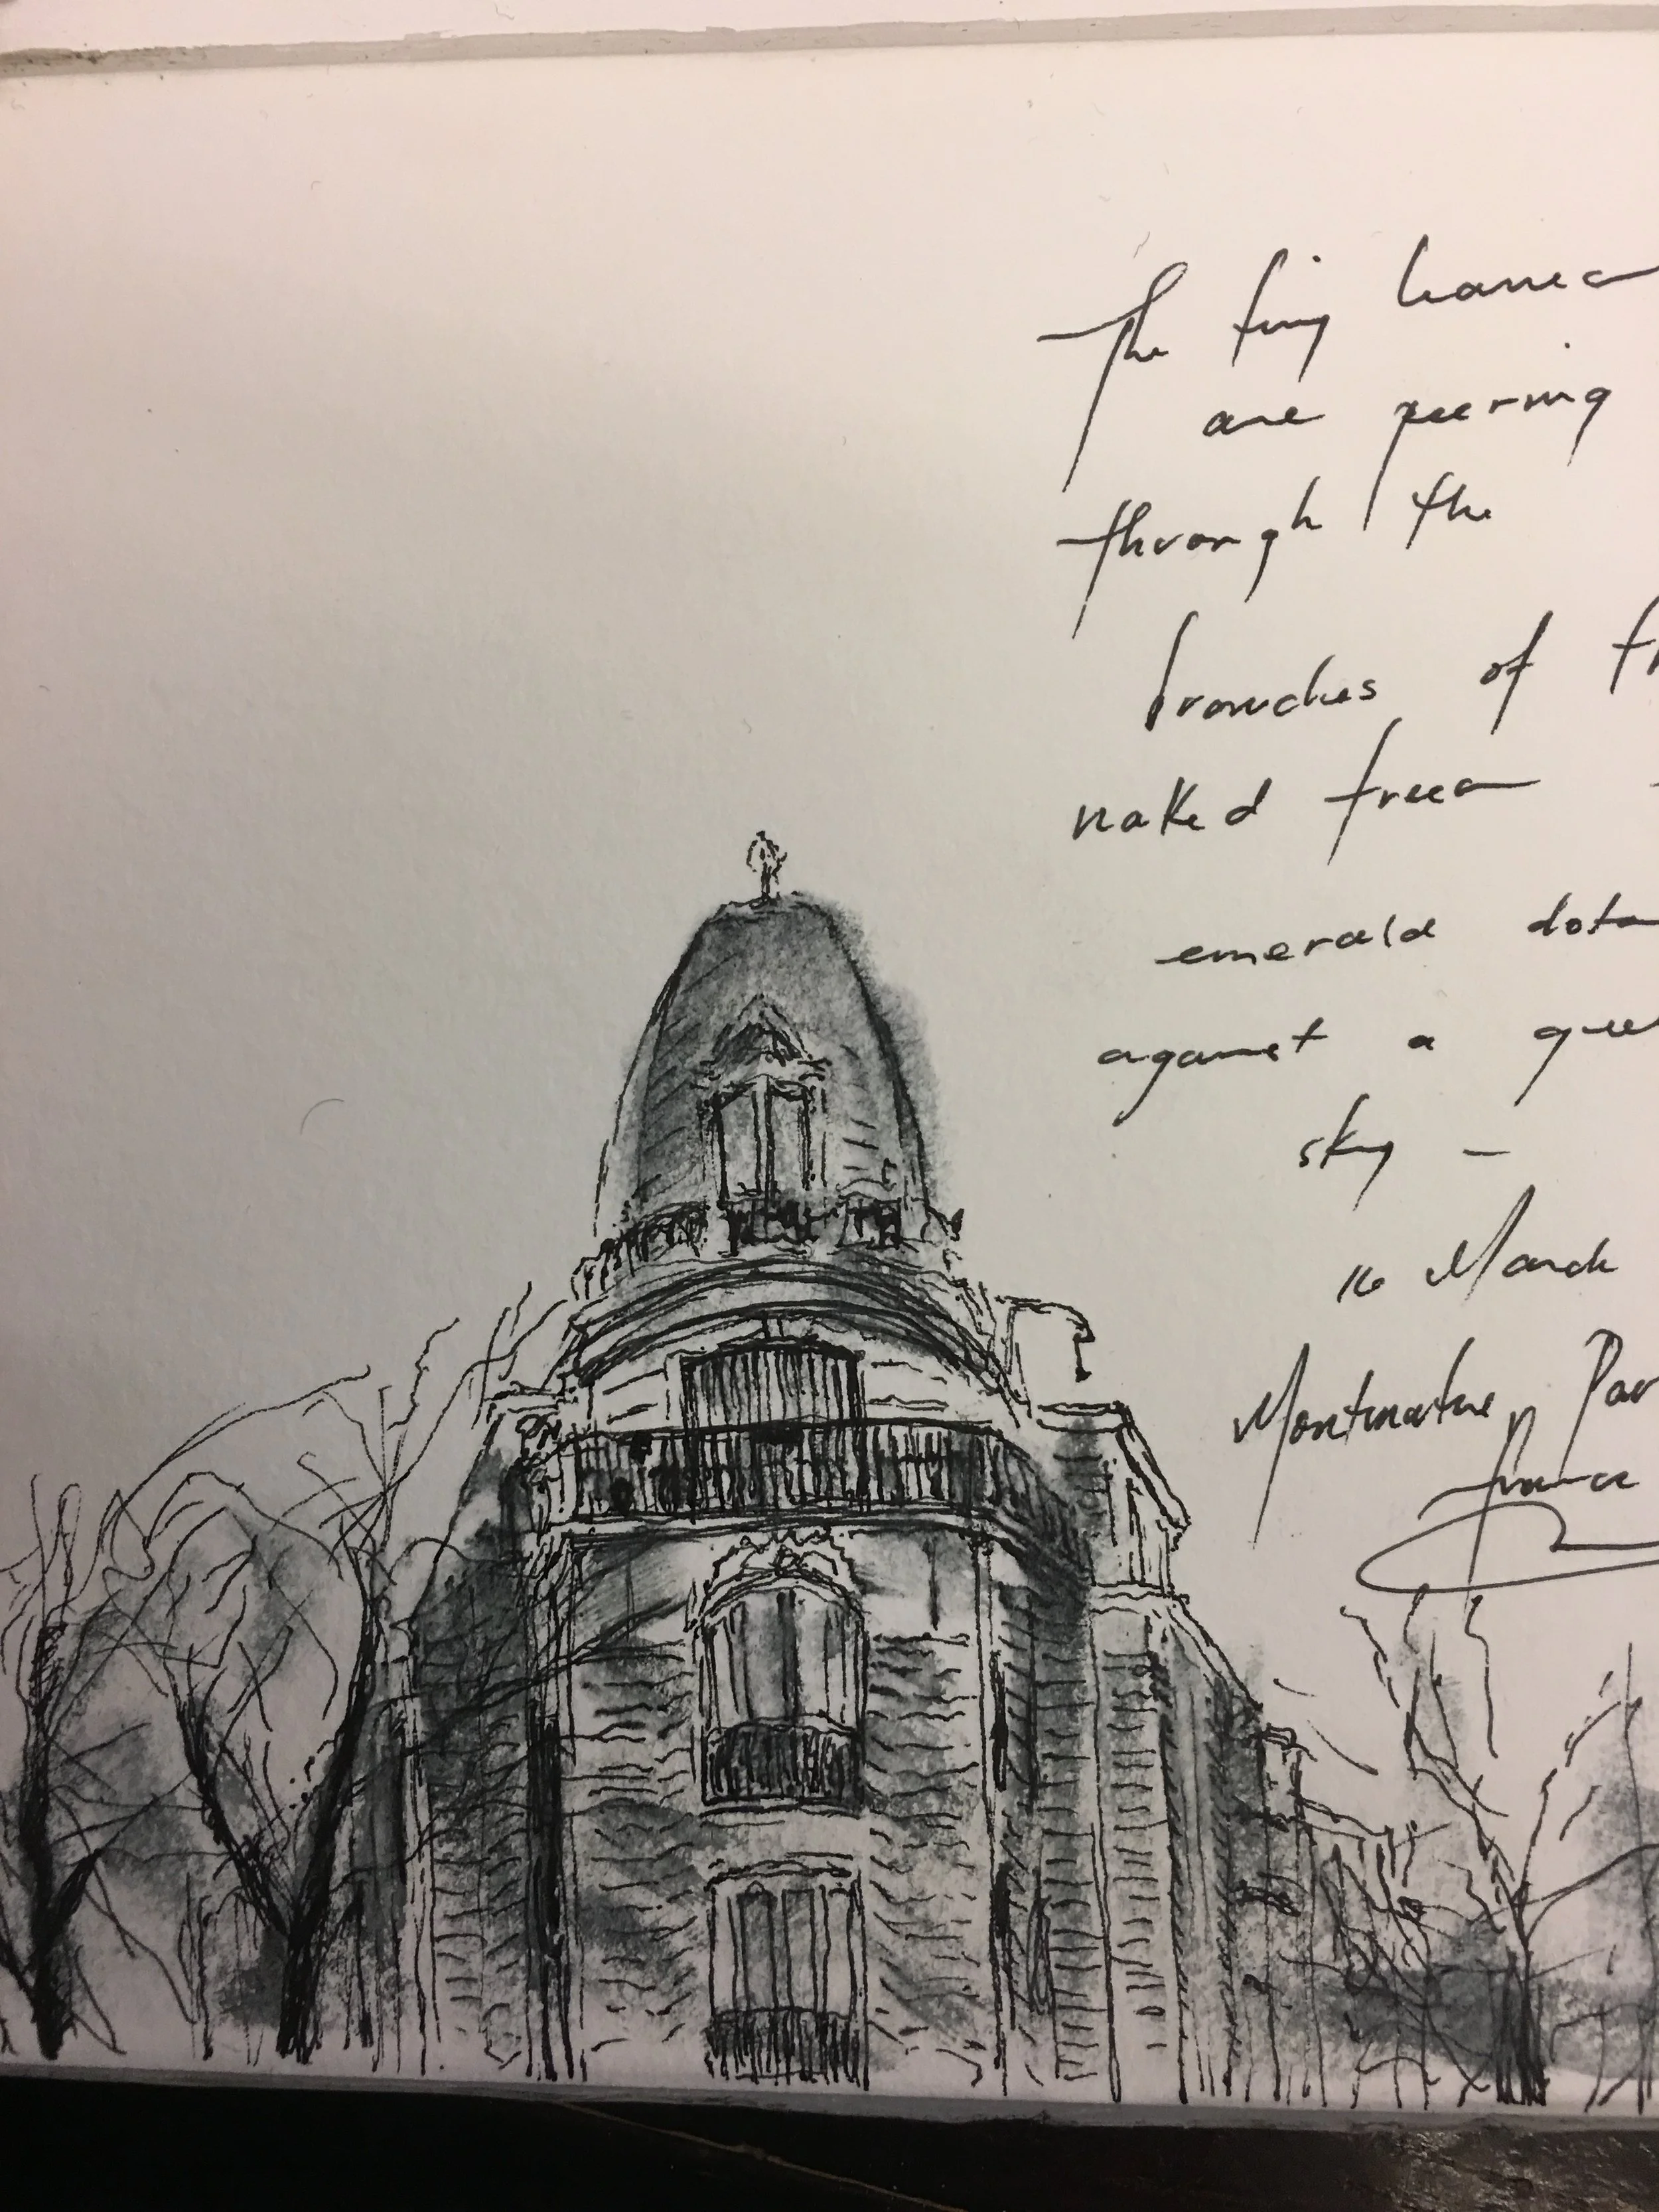 The tiny leaves
are peering
through the
branches of th
naked trees -
emerald dots
against a
sky -
16 March
Montmartre, Par
France